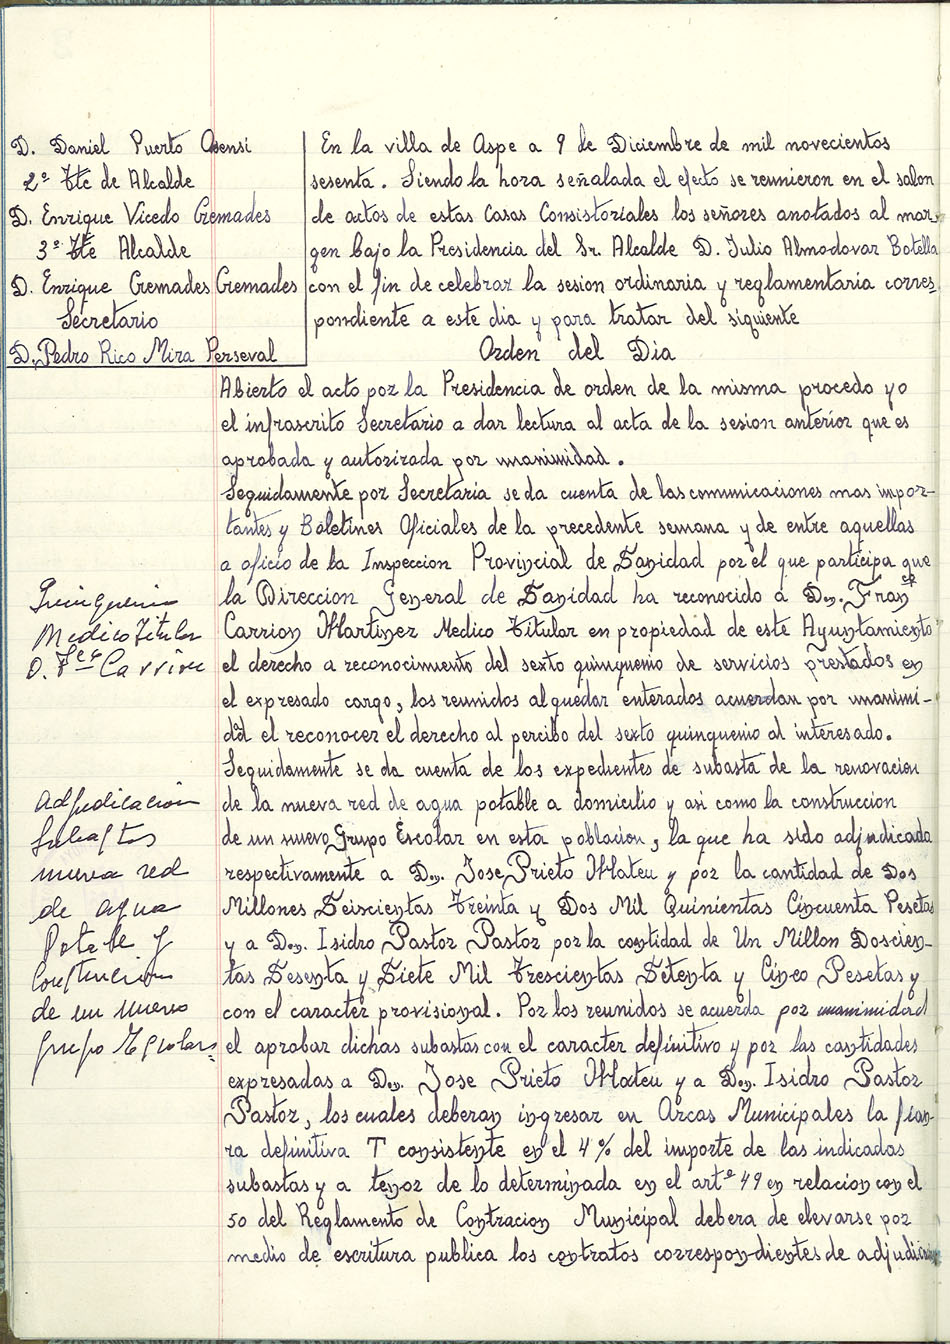 D. Daniel Puerto Asensi
2º Tte de Alcalde
D. Enrique Vicedo Cremades
3º Tte Alcalde
D. Enrique Cremades Cremades
Secretario
D. Pedro Rico Mira Perseval
En la villa de Aspe a 9 de Diciembre de mil novecientos
sesenta. Siendo la hora señalada el efecto se reunieron en el salon
de actos de estas Casas Consistoriales los señores anotados al mar-
gen bajo la Presidencia del Sr. Alcalde D. Julio Almodovar Botella
con el fin de celebrar la sesion ordinaria y reglamentaria corres-
pondiente a este dia y para tratar del siguiente
Orden del Dia
Abierto el acto por la Presidencia de orden de la misma procedo yo
el infrascrito Secretario a dar lectura al acta de la sesion anterior que es
aprobada y autorizada por unanimidad.
Seguidamente por Secretaria se da cuenta de las comunicaciones mas impor-
tantes y Boletines Oficiales de la precedente semana y de entre aquellas
a oficio de la Inspeccion Provincial de Sanidad por el que participa que
la Direccion General de Sanidad ha reconocido a Don. Francº
Carrion Martinez Medico Titular en propiedad de este Ayuntamiento
el derecho a reconocimiento del sexto quinquenio de servicios prestados en
el expresado cargo, los reunidos al quedar enterados acuerdan por unanimi-
dad el reconocer el derecho al percibo del sexto quinquenio al interesado.
Seguidamente se da cuenta de los expedientes de subasta de la renovacion
de la nueva red de agua potable a domicilio y asi como la construccion
de un nuevo Grupo Escolar en esta poblacion, la que ha sido adjudicada
respectivamente a Don. Jose Prieto Mateu y por la cantidad de Dos
Millones Seiscientas Treinta y Dos Mil Quinientas Cincuenta Pesetas
y a Don. Isidro Pastor Pastor por la contidad de Un Millon Doscien-
tas Sesenta y Siete Mil Trescientas Setenta y Cinco Pesetas y
con el caracter provisional. Por los reunidos se acuerda por unanimidad
el aprobar dichas subastas con el caracter definitivo y por las cantidades
expresadas a Don. Jose Prieto Mateu y a Don. Isidro Pastor
Pastor, los cuales deberan ingresar en Arcas Municipales la fian-
za definitiva T consistente en el 4% del importe de las indicadas
subastas y a tenor de lo determinada en el artº 49 en relacion con el
50 del Reglamento de Contracion Municipal debera de elevarse por
medio de escritura publica los contratos correspon-dientes de
Quinquenio
Medico Titular
D. Fco Carrion
Adjudicacion
Subastas
nueva red
de agua
Potable y
Construcion
de un nuevo
grupo Escolar